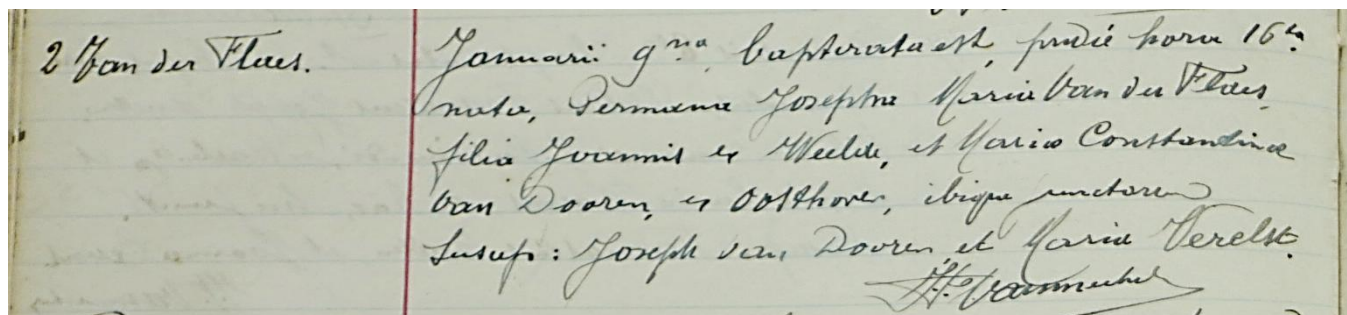 2 Van der Flaes.
Januarii 9na, baptizata est, pridie hora 16ta
nata, Germana Josephina Maria Van der Flaes,
filia Joannis ex Weelde, et Maria Constantina
Van Dooren, ex Oosthoven, ibique junctorum
Suscep: Joseph van Dooren, et Maria Verelst.